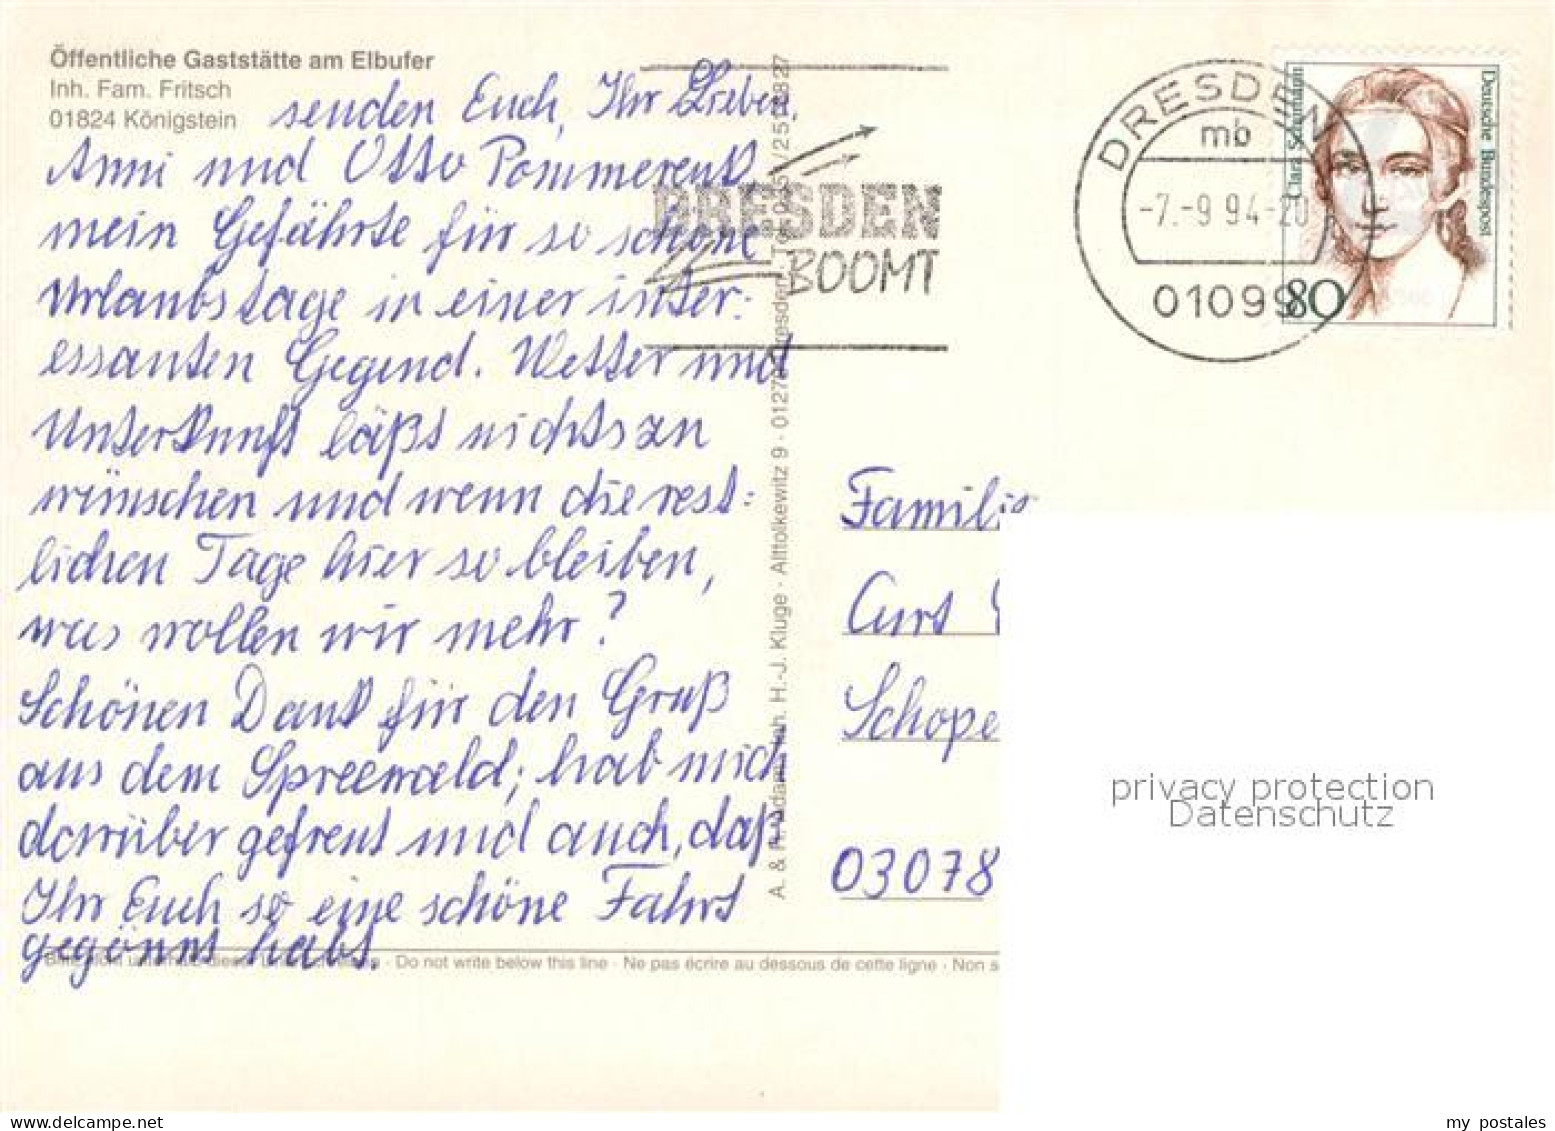 Öffentliche Gaststätte am Elbufer
Inh. Fam. Fritsch
01824 Königstein
senden Euch, Ihr Lieben,
Anni und Otto Pommerenk
mein Gefährte für so schöne
Urlaubstage in einer inter:
essanten Gegend. Wetter und
Unterkunft läßt nichts zu
wünschen und wenn die rest:
lichen Tage hier so bleiben,
was wollen wir mehr?
Schönen Dank für den Gruß
aus dem Spreewald; hab mich
darüber gefreut und auch, daß
Ihr Euch so eine schöne Fahrt
gegönnt habt.
Do not write below this line · Ne pas écrire au dessous de cette ligne · Non s
A. & R. Adam, Inh. H.-J. Kluge · Alttolkewitz 9 · 01279 Dresden
DRESDEN
BOOMT
DRESDEN 1
mb
-7.-9 94-20
01099
Clara Schumann
Deutsche Bundespost
80
Familie
Curt
Schope
03078
privacy protection
Datenschutz
my postales